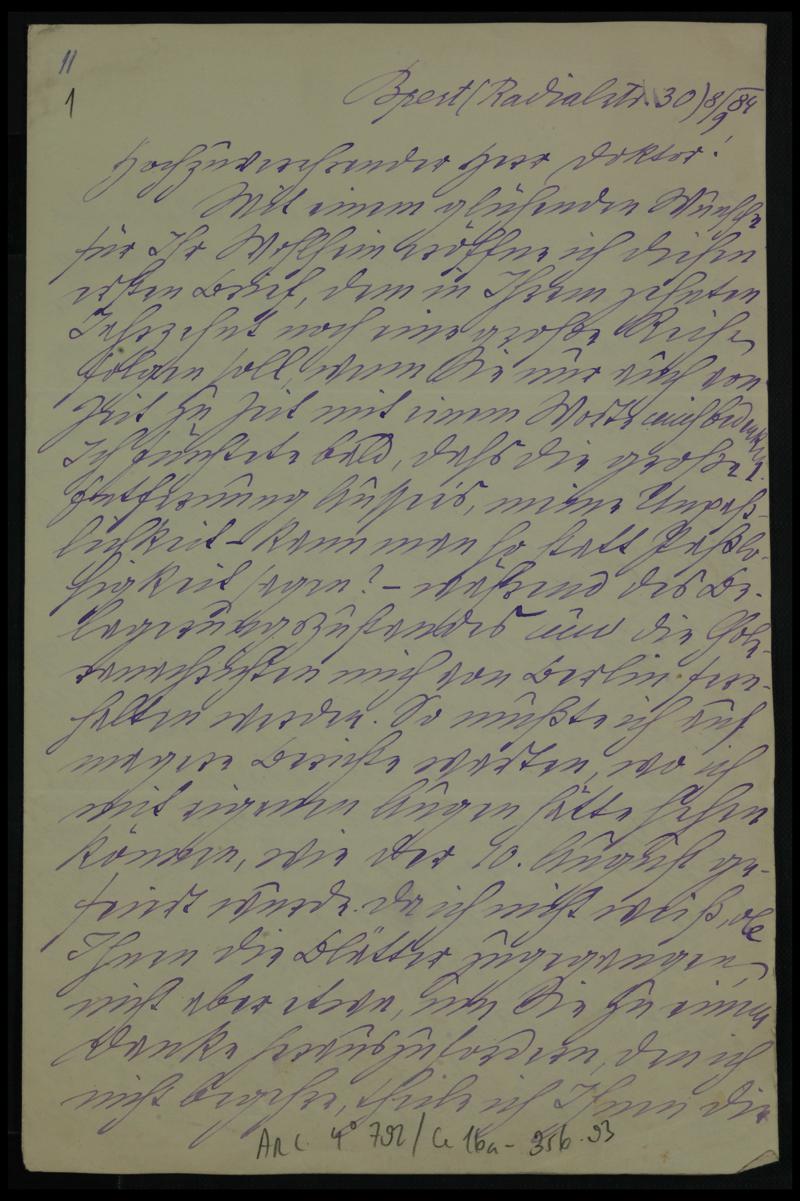 11
1
Bpest (Radialstr. 30) 8/9 84
Hochzuverehrender Herr Doktor!
Mit einem glühenden Wunsche
für Ihr Wohlsein eröffne ich diesen
ersten Brief, dem in Ihrem zehnten
Jahrzehnt noch eine große Reihe
folgen soll, wenn Sie nur auch von
Zeit zu Zeit mit einem Worte mich bedenken.
Ich fürchtete bald, daß die große
Entfernung Aussee's, meine Unpäß-
lichkeit – kann man so statt Paßlo-
sigkeit sagen? – während des Be-
lagerungszustandes und die Chole-
ranachrichten mich von Berlin fern-
halten werden. So mußte ich auf
magere Berichte warten, wo ich
mit eigenen Augen hätte sehen
können, wie der 10. August ge-
feiert wurde. Da ich nicht weiß, ob
Ihnen die Blätter zugegangen,
nicht aber etwa, um Sie zu einem
Danke herauszufordern, den ich
nicht begehre, theile ich Ihnen die
ARC. 4° 792/Ce 16a- 356.93